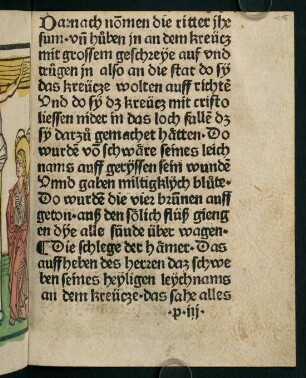 Darnach nōmen die ritter jhe
sum · vn̄ hūben in an dem kreücz
mit grossem geschreye auf vnd
trūgen in also an die stat do sy
das kreücze wolten auff richtē
Vnd do sy dz kreücz mit cristo
liessen nider in das loch fallē dz
sy darzū gemachet hātten · Do
wurdē vō schwāre seines leich
nams auff geryssen sein wundē
Vnnd gaben miltigklych blūte ·
Do wurdē die vier brūnen auff
geton · auß den sōlich flüß gieng
en dye alle sünde über wagen ·
¶ Die schlege der hāmer · Das
auffheben des herren daz schwe
ben seines heyligen leychnams
an dem kreücze · das sahe alles
· p · iij ·